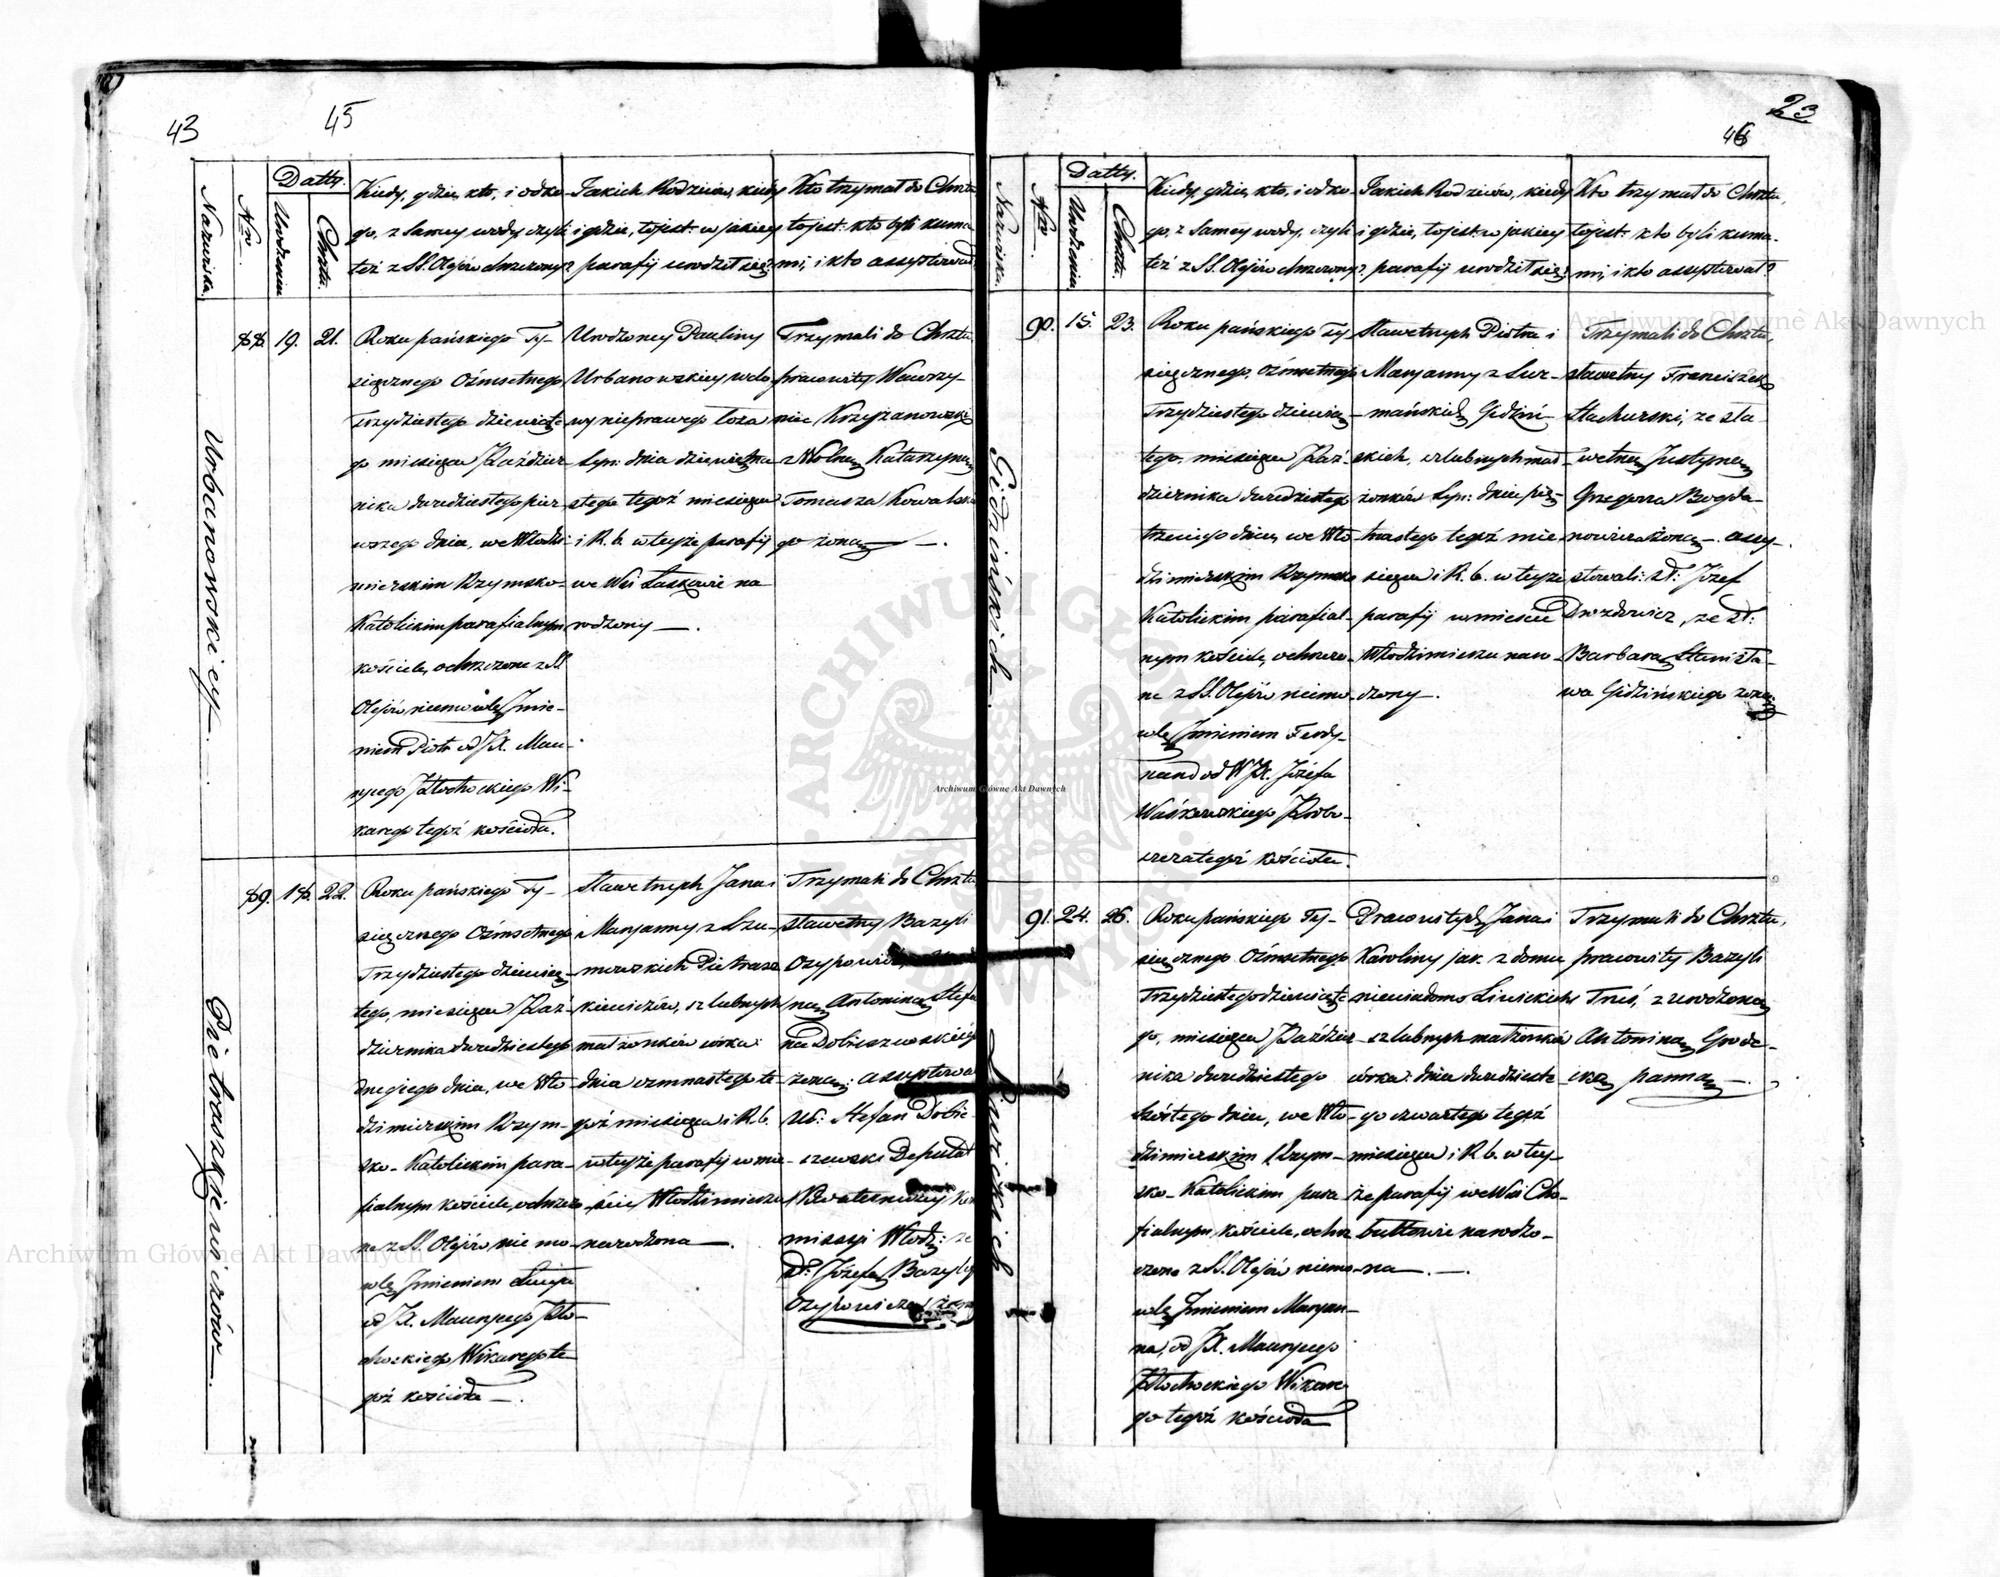 43
45
Nazwiska.
Nro
Datty.
Urodzenia
Chrztu.
Kiedy, gdzie, kto, i od ko-
go, z Samey wody, czyli
też z SS. Olejów chrzczony?
Jakich Rodziców, kiedy
i gdzie, to jest: w jakiey
parafij urodził się?
Kto trzymał do Chrztu
to jest: kto byli kuma-
mi, i kto assystował
Urbanowskiey.
88. 19. 21.
Roku pańskiego Ty-
siącznego Ośmsetnego
Trzydziestego dziewiąte-
go miesiąca Paździer-
nika dwudziestego pier-
wszego dnia, we Włodzi-
mierskim Rzymsko-
Katolickim parafialnym
kościele, ochrzczone z SS
Olejów niemowlę Jmie-
niem Piotr od JX. Mau-
rycego Płochockiego Wi-
karego tegoż kościoła.
Urodzoney Pauliny
Urbanowskiey wdo
wy nieprawego łoża
Syn: dnia dziewiętna
stego tegoż miesiąca
i R. b. w teyże parafij
we Wsi Łaskowie na
rodzony.
Trzymali do Chrztu
pracowity Wawrzy-
niec Krzyżanowski
z Wolną Katarzyną
Tomasza Kowalske
go żoną.
Pietraszkiewiczów.
89. 18. 22.
Roku pańskiego Ty-
siącznego Ośmsetnego
Trzydziestego dziewią-
tego, miesiąca Paź-
dziernika dwudziestego
drugiego dnia, we Wło-
dzimierskim Rzym-
sko-Katolickim para-
fialnym kościele, ochrzczo-
ne z SS. Olejów niemo-
wlę Jmieniem Łucja
od JX. Maurycego Pło-
chockiego Wikarego te-
goż kościoła.
Sławetnych Jana i
Maryanny z Szu-
mowskich Pietrasz
kiewiczów, szlubnych
małżonków córka:
dnia ośmnastego te-
goż miesiąca i R. b.
w teyże parafij w mie-
ście Włodzimierzu
narodzona.
Trzymali do Chrztu
sławetny Bazyli
Ozypowicz,
ną Antoniną Stefa
na Dobieszewskiego
żoną: assystowa
Ur: Stefan Dobie-
szewski Deputat
Kwaterniczey Ko
missyi Włodz: ze
st: Józefą Bazylego
Ozypowicza żoną
23
46
Nazwiska.
Nro
Datty.
Urodzenia
Chrztu.
Kiedy, gdzie, kto, i od ko-
go, z Samey wody, czyli
też z SS. Olejów chrzczony?
Jakich Rodziców, kiedy
i gdzie, to jest: w jakiey
parafij urodził się?
Kto trzymał do Chrztu,
to jest: kto byli kuma-
mi, i kto assystował?
Gidzińskich.
90. 15. 23.
Roku pańskiego Ty-
siącznego, Ośmsetnego
Trzydziestego dziewią-
tego, miesiąca Paź-
dziernika dwudziestego
trzeciego dnia, we Wło-
dzimierskim Rzymsko
Katolickim parafial-
nym kościele, ochrzczo-
ne z SS. Olejów niemo-
wlę Jmieniem Ferdy-
nand od WJX. Józefa
Waśkowskiego Probo-
szcza tegoż kościoła.
Sławetnych Piotra i
Maryanny z Szu-
mańskich Gidziń-
skich, szlubnych mał-
żonków Syn: dnia pię-
tnastego tegoż mie-
siąca i R. b. w teyże
parafij w mieście
Włodzimierzu naro-
dzony.
Trzymali do Chrztu,
sławetny Franciszek
Stachurski, ze sła-
wetną Justyną
Grzegorza Bogda-
nowicza żoną. assy-
stowali: st: Józef
Drozdowicz, ze st:
Barbarą Stanisła-
wa Gidzińskiego żoną
Liwickich
91. 24. 26.
Roku pańskiego Ty-
siącznego Ośmsetnego
Trzydziestego dziewiąte-
go, miesiąca Paździer-
nika dwudziestego
szóstego dnia, we Wło-
dzimierskim Rzym-
sko-Katolickim para
fialnym kościele, ochrz
czone z SS. Olejów niemo-
wlę Jmieniem Maryan-
na, od JX. Maurycego
Płochockiego Wikare
go tegoż kościoła
Pracowitych Jana i
Karoliny jak. z domu
niewiadomo Liwickich
szlubnych małżonków
córka: dnia dwudzieste
go czwartego tegoż
miesiąca i R. b. w tey-
że parafij we Wsi Cho-
bułtowie narodzo-
na.
Trzymali do Chrztu,
pracowity Bazyli
Truś, z urodzoną
Antoniną Grode-
cką panną.
Archiwum Główne Akt Dawnych
Archiwum Główne Akt Dawnych
Archiwum Główne Akt Dawnych